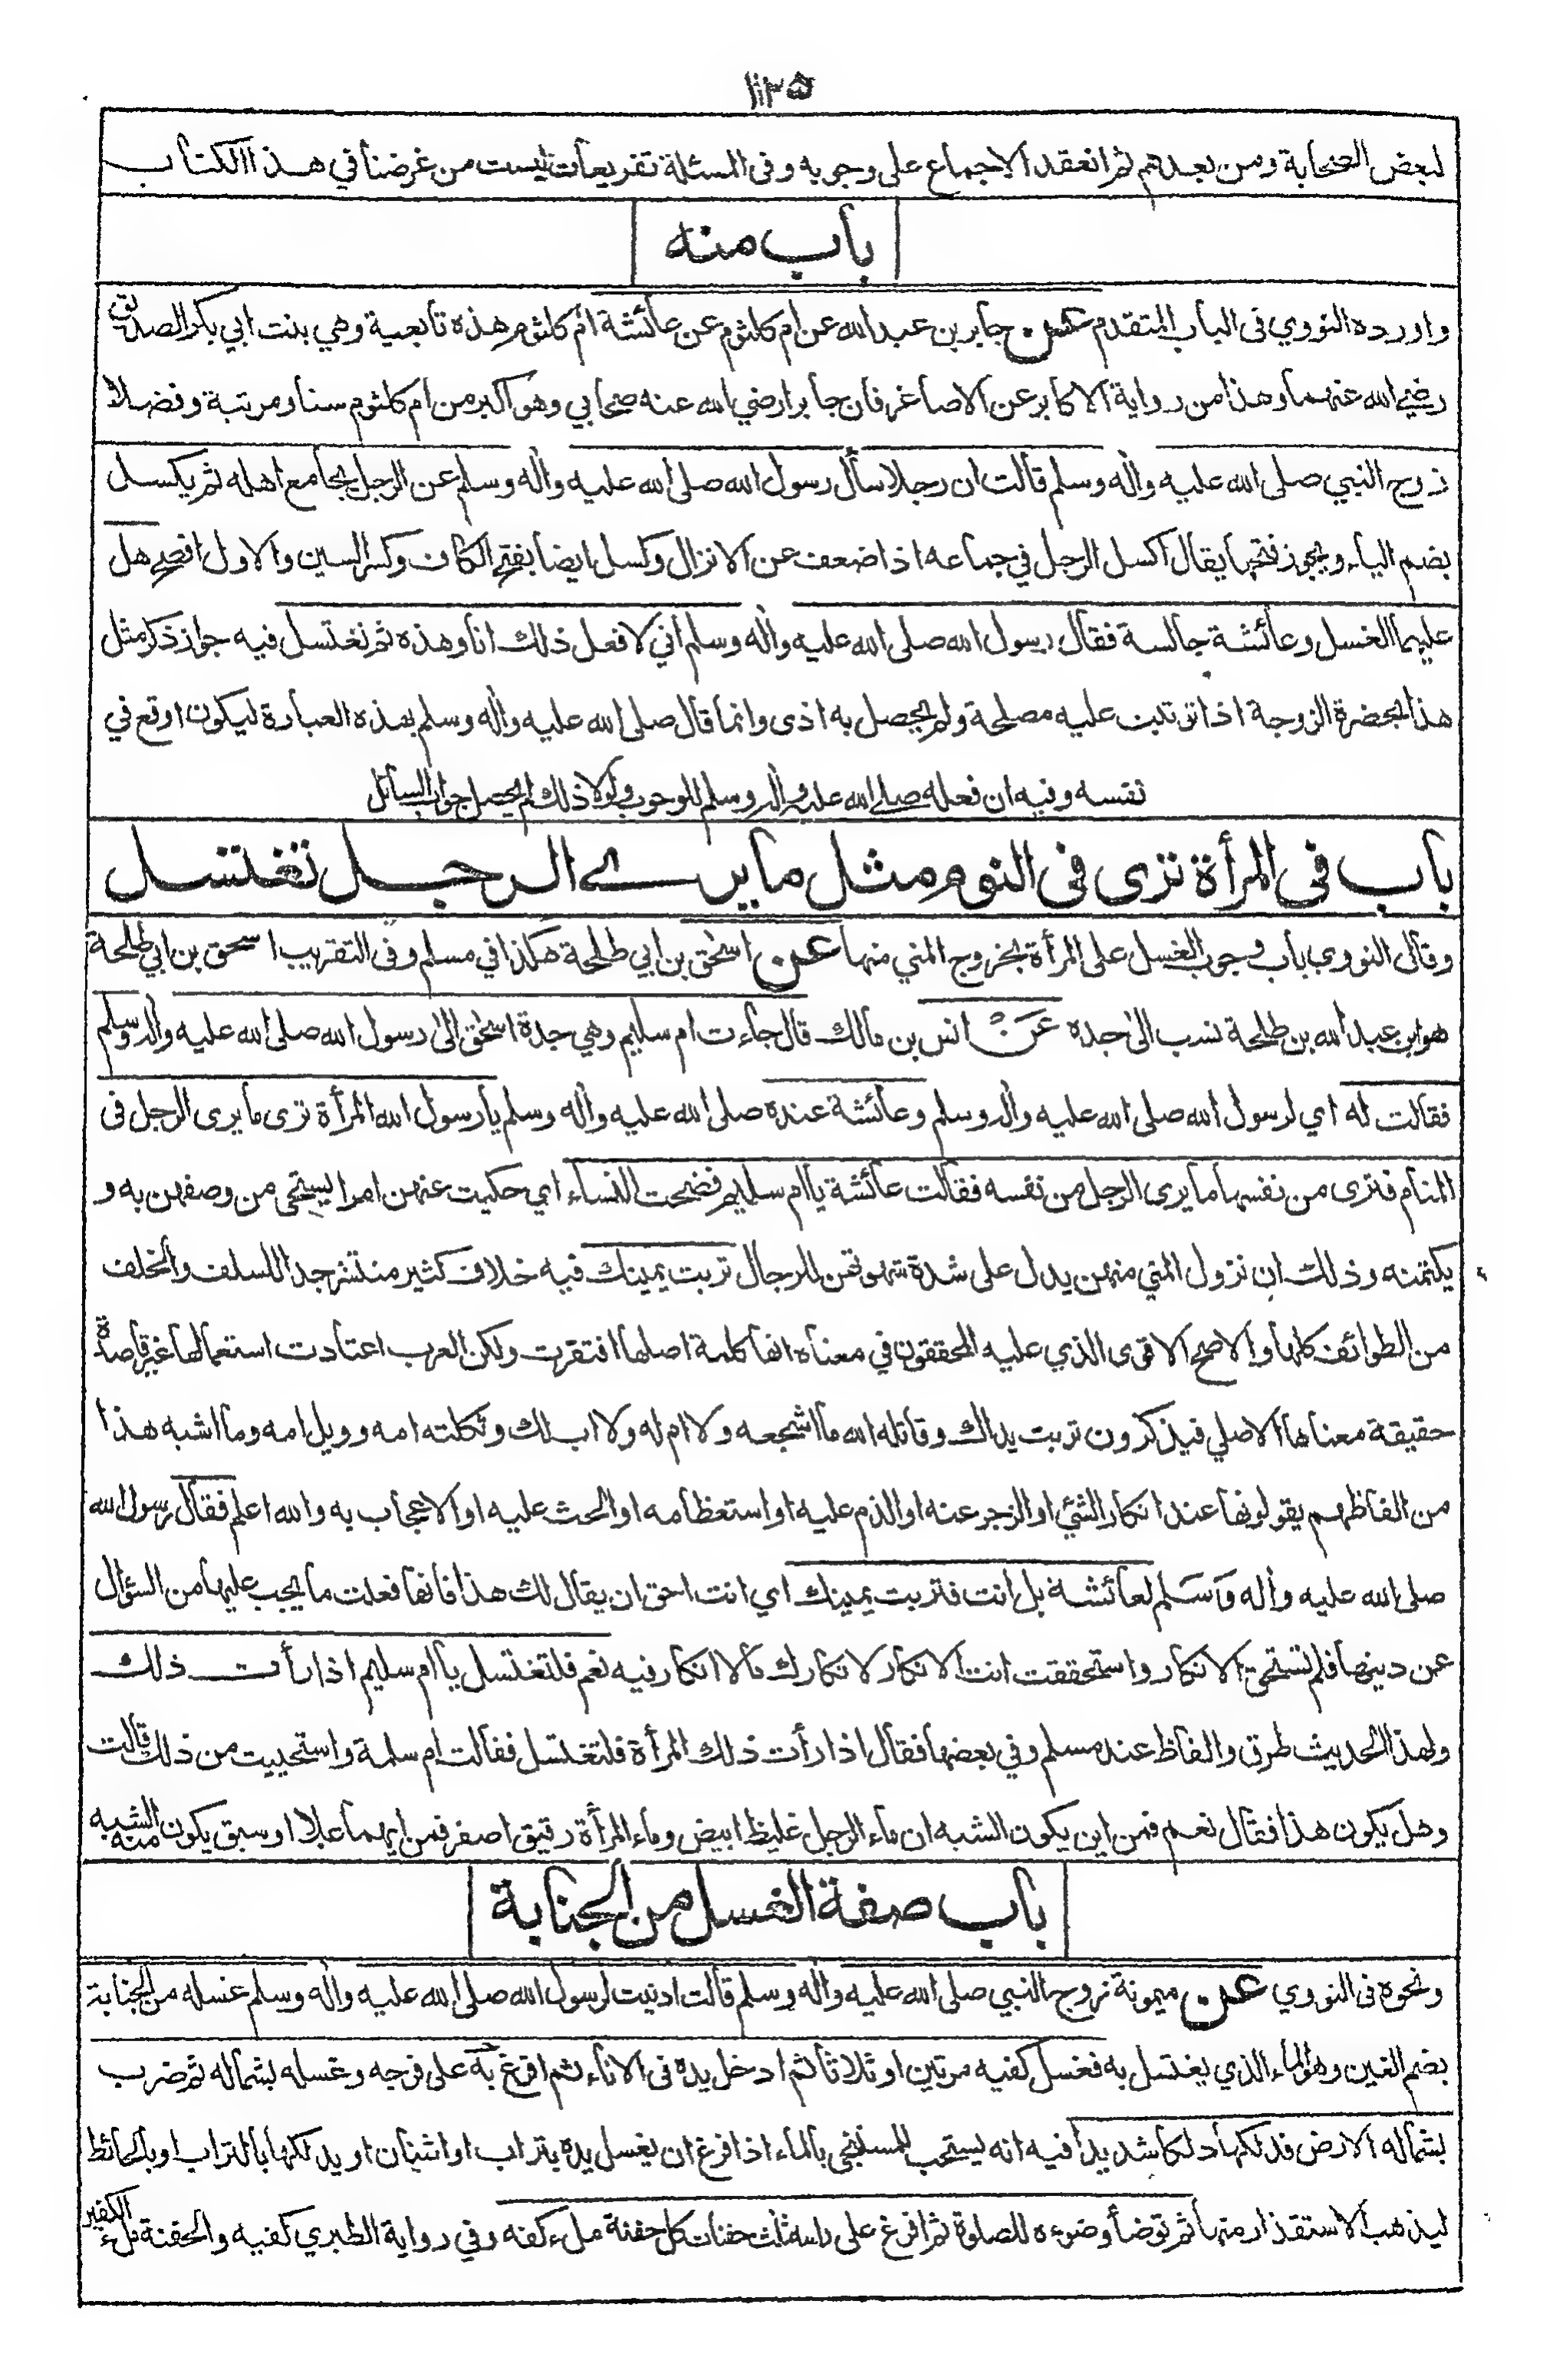 ١٢٥
لبعض الصحابة ومن بعدهم ثم انعقد الاجماع على وجوبه وفى المسئلة تفريعات ليست من غرضنا في هذا الكتاب
باب منه
واورده النووي فى الباب المتقدم عن جابر بن عبد الله عن ام كلثوم عن عائشة ام كلثوم هذه تابعية وهي بنت ابي بكر الصديق
رضي الله عنهما وهذا من رواية الاكابر عن الاصاغر فان جابرا رضي الله عنه صحابي وهو اكبر من ام كلثوم سنا ومرتبة وفضلا
زوج النبي صلى الله عليه واٰله وسلم قالت ان رجلا سأل رسول الله صلى الله عليه واٰله وسلم عن الرجل يجامع اهله ثم يكسل
بضم الياء ويجوز فتحها يقال اكسل الرجل في جماعه اذا ضعف عن الانزال وكسل ايضا بفتح الكاف وكسر السين والاول افصح هل
عليهما الغسل وعائشة جالسة فقال رسول الله صلى الله عليه واٰله وسلم اني لافعل ذلك انا وهذه ثم نغتسل فيه جواز ذكر مثل
هذا بحضرة الزوجة اذا ترتبت عليه مصلحة ولم يحصل به اذى وانما قال صلى الله عليه واٰله وسلم بهذه العبارة ليكون اوقع في
نفسه وفيه ان فعله صلى الله عليه واٰله وسلم للوجوب ولولا ذلك لم يحصل جواب السائل
باب فى المرأة ترى فى النوم مثل ما يرى الرجل تغتسل
وقال النووي باب وجوب الغسل على المرأة بخروج المني منها عن اسحٰق بن ابي طلحة هكذا في مسلم وفى التقريب اسحق بن ابي طلحة
هو ابن عبد الله بن طلحة نسب الى جده عَنْ انس بن مالك قال جاءت ام سليم وهي جدة اسحٰق الى رسول الله صلى الله عليه واٰله وسلم
فقالت له اي لرسول الله صلى الله عليه واٰله وسلم وعائشة عنده صلى الله عليه واٰله وسلم يا رسول الله المرأة ترى ما يرى الرجل فى
المنام فترى من نفسها ما يرى الرجل من نفسه فقالت عائشة يا ام سليم فضحت النساء اي حكيت عنهن امرا يستحى من وصفهن به و
يكتمنه وذلك ان نزول المني منهن يدل على شدة شهوتهن للرجال تربت يمينك فيه خلاف كثير منتشر جدا للسلف والخلف
من الطوائف كلها والاصح الاقوى الذي عليه المحققون في معناه انها كلمة اصلها افتقرت ولكن العرب اعتادت استعمالها غير قاصدة
حقيقة معناها الاصلي فيذكرون تربت يداك وقاتله الله ما اشجعه ولا ام له ولا اب لك وثكلته امه وويل امه وما اشبه هذا
من الفاظهم يقولونها عند انكار الشئ او الزجر عنه او الذم عليه او استعظامه او الحث عليه او الاعجاب به والله اعلم فقال رسول الله
صلى الله عليه واٰله وَسَلم لعائشة بل انت فتربت يمينك اي انت احق ان يقال لك هذا فانها فعلت ما يجب عليها من السؤال
عن دينها فلم تستحق الانكار واستحققت انت الانكار لانكارك ما لا انكار فيه نعم فلتغتسل يا ام سليم اذا رأت ذلك
ولهذا الحديث طرق والفاظ عند مسلم وفي بعضها فقال اذا رأت ذلك المرأة فلتغتسل فقالت ام سلمة واستحييت من ذلك قالت
وهل يكون هذا فقال نعم فمن اين يكون الشبه ان ماء الرجل غليظ ابيض وماء المرأة رقيق اصفر فمن ايهما علا او سبق يكون منه الشبه
باب صفة الغسل من الجنابة
ونحوه فى النووي عن ميمونة زوج النبي صلى الله عليه واٰله وسلم قالت ادنيت لرسول الله صلى الله عليه واٰله وسلم غسله من الجنابة
بضم الغين وهو الماء الذي يغتسل به فغسل كفيه مرتين او ثلاثا ثم ادخل يده فى الاناء ثم افرغ به على فرجه وغسله بشماله ثم ضرب
بشماله الارض فدلكها دلكا شديدا فيه انه يستحب للمستنجي بالماء اذا فرغ ان يغسل يده بتراب او اشنان او يدلكها بالتراب او بالحائط
ليذهب الاستقذار منها ثم توضأ وضوءه للصلوة ثم افرغ على راسه ثلث حفنات كل حفنة ملء كفه وفي رواية الطبري كفيه والحفنة ملء الكفين